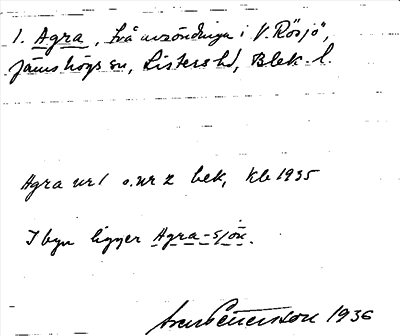 1. Agra, två avsöndringar i V. Rösjö,
Jämshögs sn, Listers hd, Blek. l.
Agra nr 1 o. nr 2 bek, Kb 1935
I byn ligger Agra-sjön.
Pettersson 1936